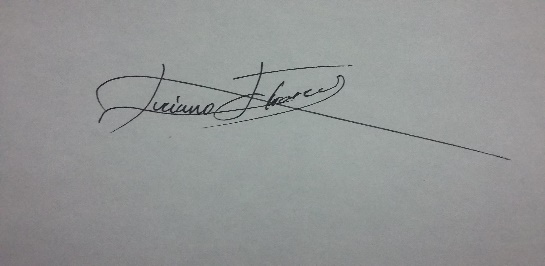 Luciano Flores